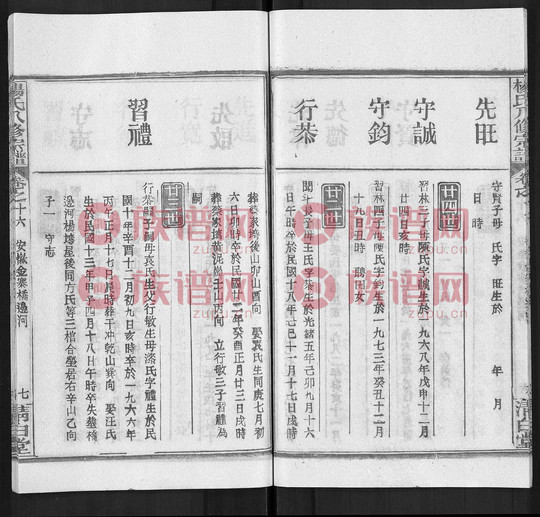 楊氏八修宗譜
清白堂
先旺
守賢子母 氏字 旺生於 年 月
日 時
廿四世
守誠
習林三子母陳氏字誠生於一九六八年戊申十二月
廿四日亥時
守鈞
習林四子母陳氏字鈞生於一九七三年癸丑十二月
十九日丑時
廿二世
行恭
聞年長子母王氏字恭生於光緒五年己卯九月十六
日午時卒於民國十八年己巳十一月十七日戌時
葬蔡家塆後山卯山酉向 娶
氏生同庚七月初
六日卯時卒於民國廿二年癸酉正月廿三日戌時
葬蔡家塆黃泥墈壬山丙向 立行敏三子習禮為
嗣
廿三世
習禮
行恭嗣子嗣母袁氏生父行敏生母漆氏字禮生於民
國十年辛酉十二月初九日亥時卒於一九六六年
丙午正月十七日辰時葬干冲乾山巽向 娶汪氏
生於民國十三年甲子四月十八日午時卒失葬橋
邊河楊塆屋後同方氏等三棺合塋居右辛山乙向
子一 守志
楊氏八修宗譜
卷之十六 安徽金寨橋邊河
七
清白堂
族谱网
zupu.cn